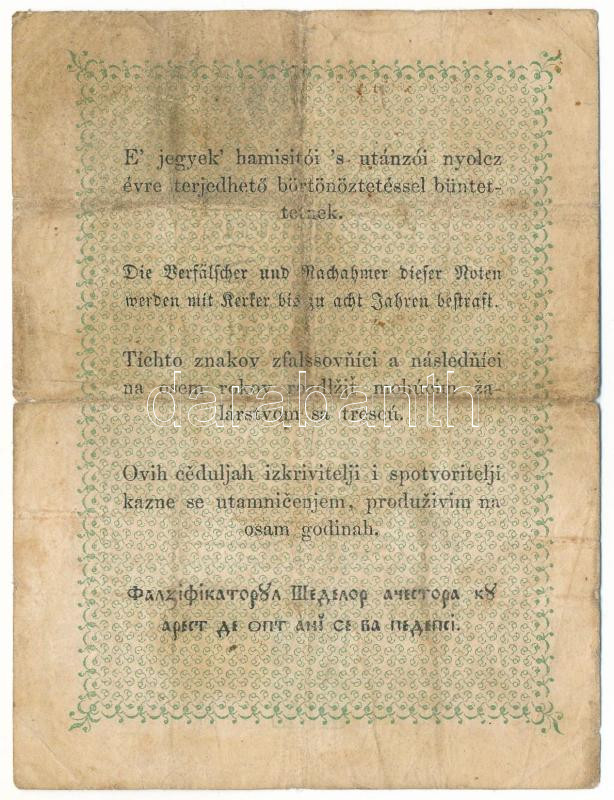 E' jegyek' hamisitói 's utánzói nyolcz
évre terjedhető börtönöztetéssel büntet-
tetnek.
Die Verfälscher und Nachahmer dieser Noten
werden mit Kerker bis zu acht Jahren bestraft.
Tíchto znakov zfalssovňíci a následňíci
na osem rokov mohúcím ža-
lárstvom sa trescú.
Ovih cěduljah izkrivitelji i spotvoritelji
kazne se utamničenjem, produživim na
osam godinah.
Фалзіфікаторꙋл Шеделор ачестора кꙋ
арест де опт анĭ се ва педепсі.
darabanth